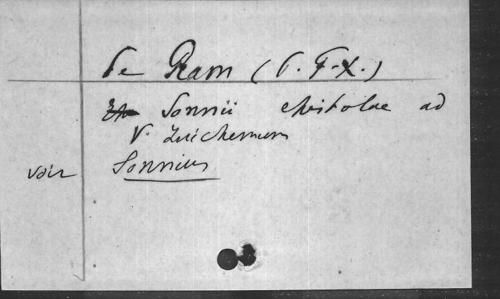 De Ram (P. F. X.)
Sonnii epistolae ad
V. Zuichemum
voir Sonnius